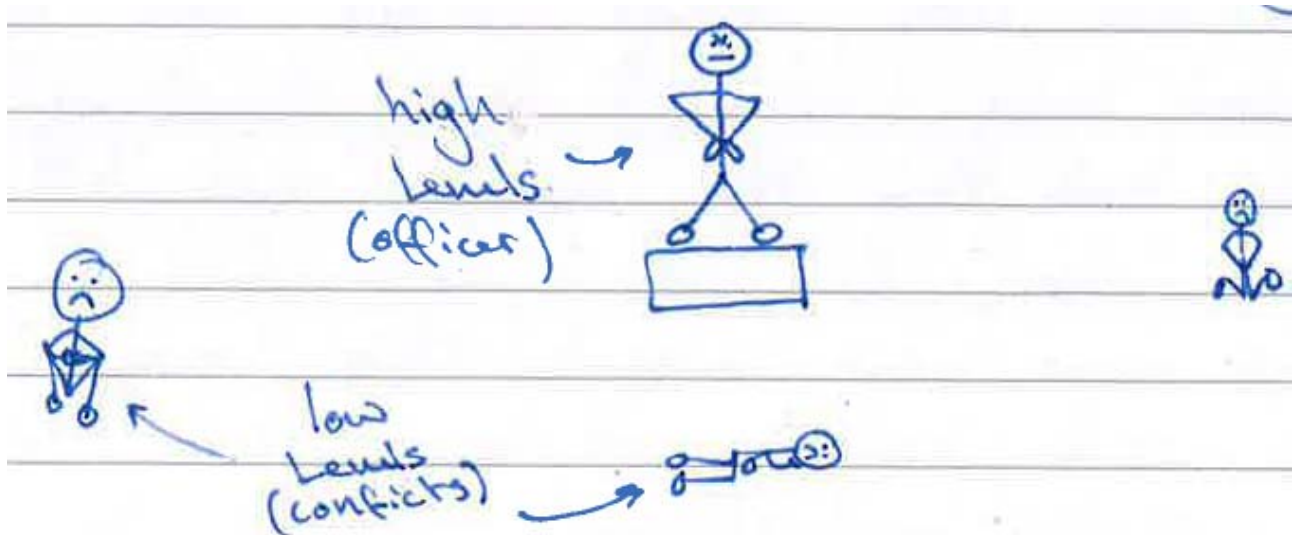 high
Levels
(officer)
low
Levels
(conficts)